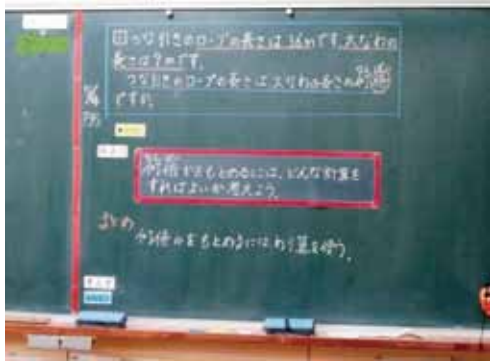 つな引きのロープの長さは36mです。大なわの
長さは9mです。
つな引きのロープの長さは大なわの長さの何倍
ですか。
何倍かをもとめるには、どんな計算を
すればよいか考えよう。
まとめ
何倍かをもとめるにはわり算を使う。